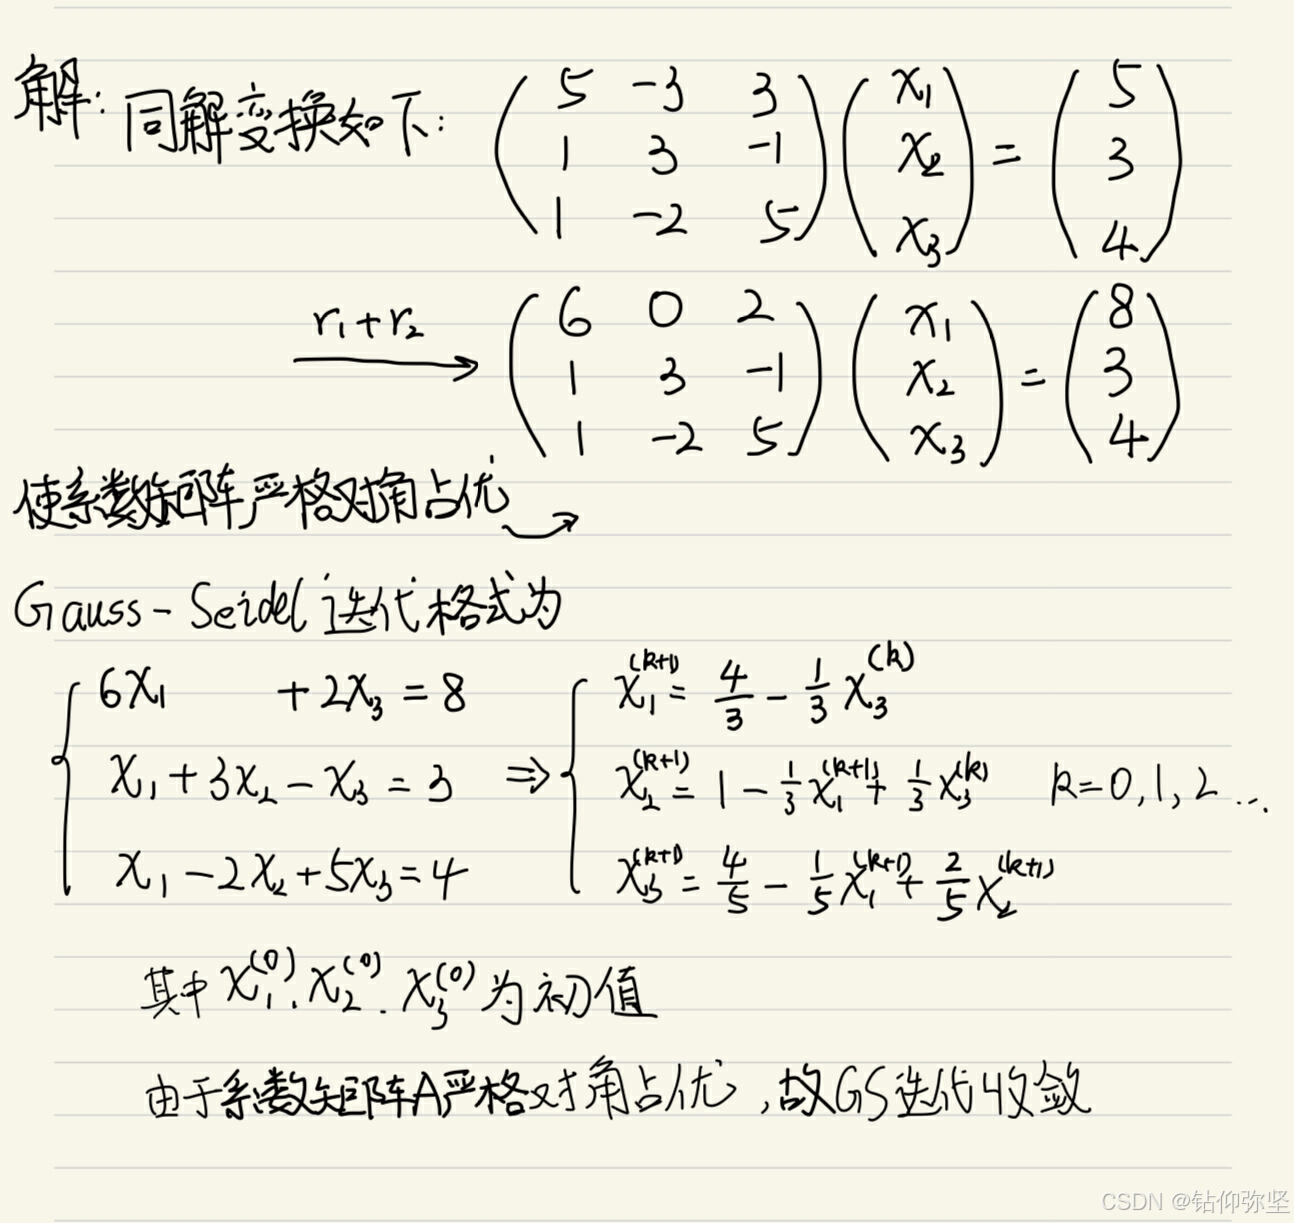 解: 同解变换如下: ( 5 -3 3 ; 1 3 -1 ; 1 -2 5 ) ( x₁ ; x₂ ; x₃ ) = ( 5 ; 3 ; 4 )
r₁+r₂ → ( 6 0 2 ; 1 3 -1 ; 1 -2 5 ) ( x₁ ; x₂ ; x₃ ) = ( 8 ; 3 ; 4 )
使系数矩阵严格对角占优
Gauss-Seidel 迭代格式为
{ 6x₁ + 2x₃ = 8 ⇒ { x₁^(k+1) = 4/3 - 1/3 x₃^(k)
x₁ + 3x₂ - x₃ = 3 x₂^(k+1) = 1 - 1/3 x₁^(k+1) + 1/3 x₃^(k) k=0,1,2...
x₁ - 2x₂ + 5x₃ = 4 x₃^(k+1) = 4/5 - 1/5 x₁^(k+1) + 2/5 x₂^(k+1)
其中 x₁^(0). x₂^(0). x₃^(0) 为初值
由于系数矩阵A严格对角占优,故GS迭代收敛
CSDN @钻仰弥坚